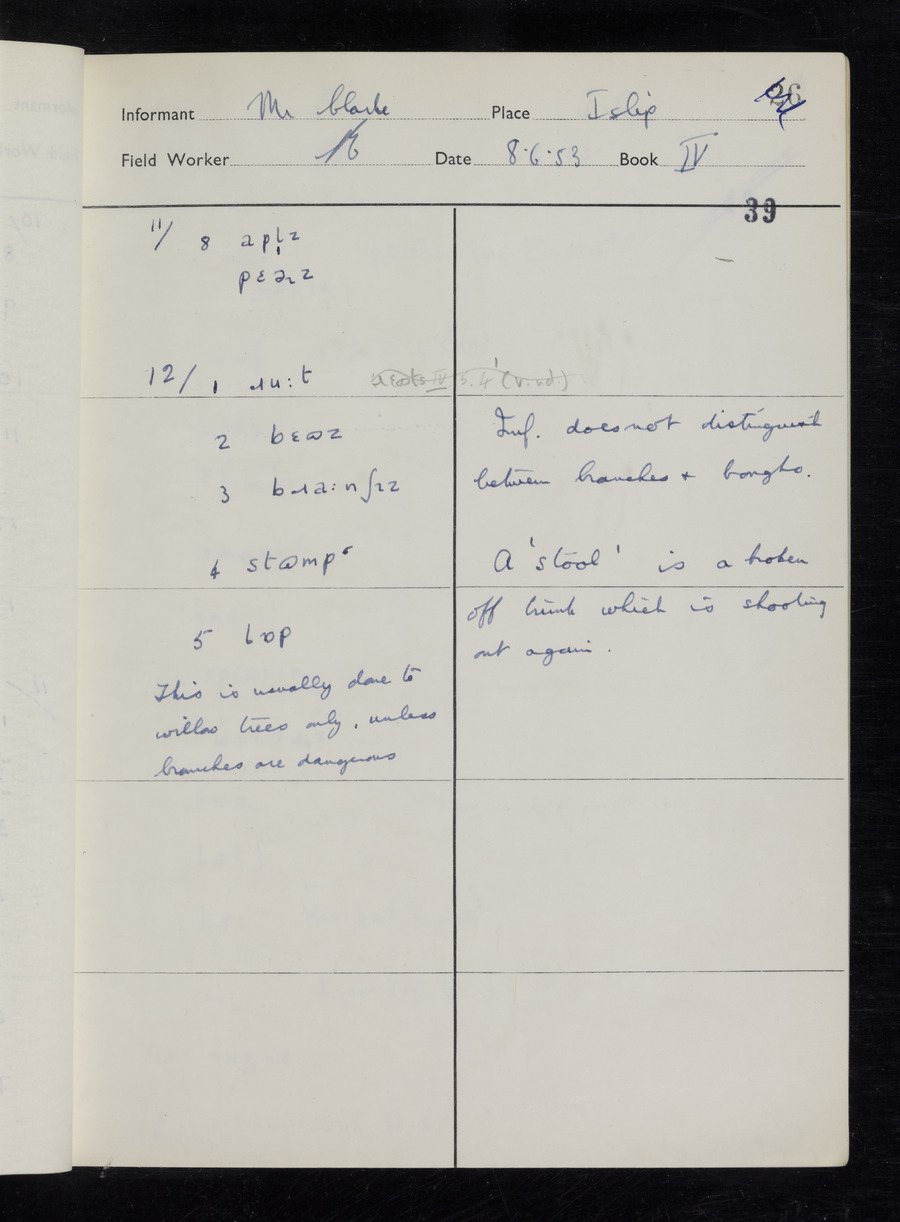 Informant Mr Clarke Place Islip 26
Field Worker Date 8·6·53 Book IV
39
11/ 8 apl̩z
pɛəɹz
12/ 1 ɹu:t IV 5.4 (v.od.)
2 bɛɷz
3 bɹa:nʃɪz
4 stɷmpʻ
5 lɒp
This is usually done to
willow trees only, unless
branches are dangerous
Inf. does not distinguish
between branches + boughs.
A 'stool' is a broken
off trunk which is shooting
out again.